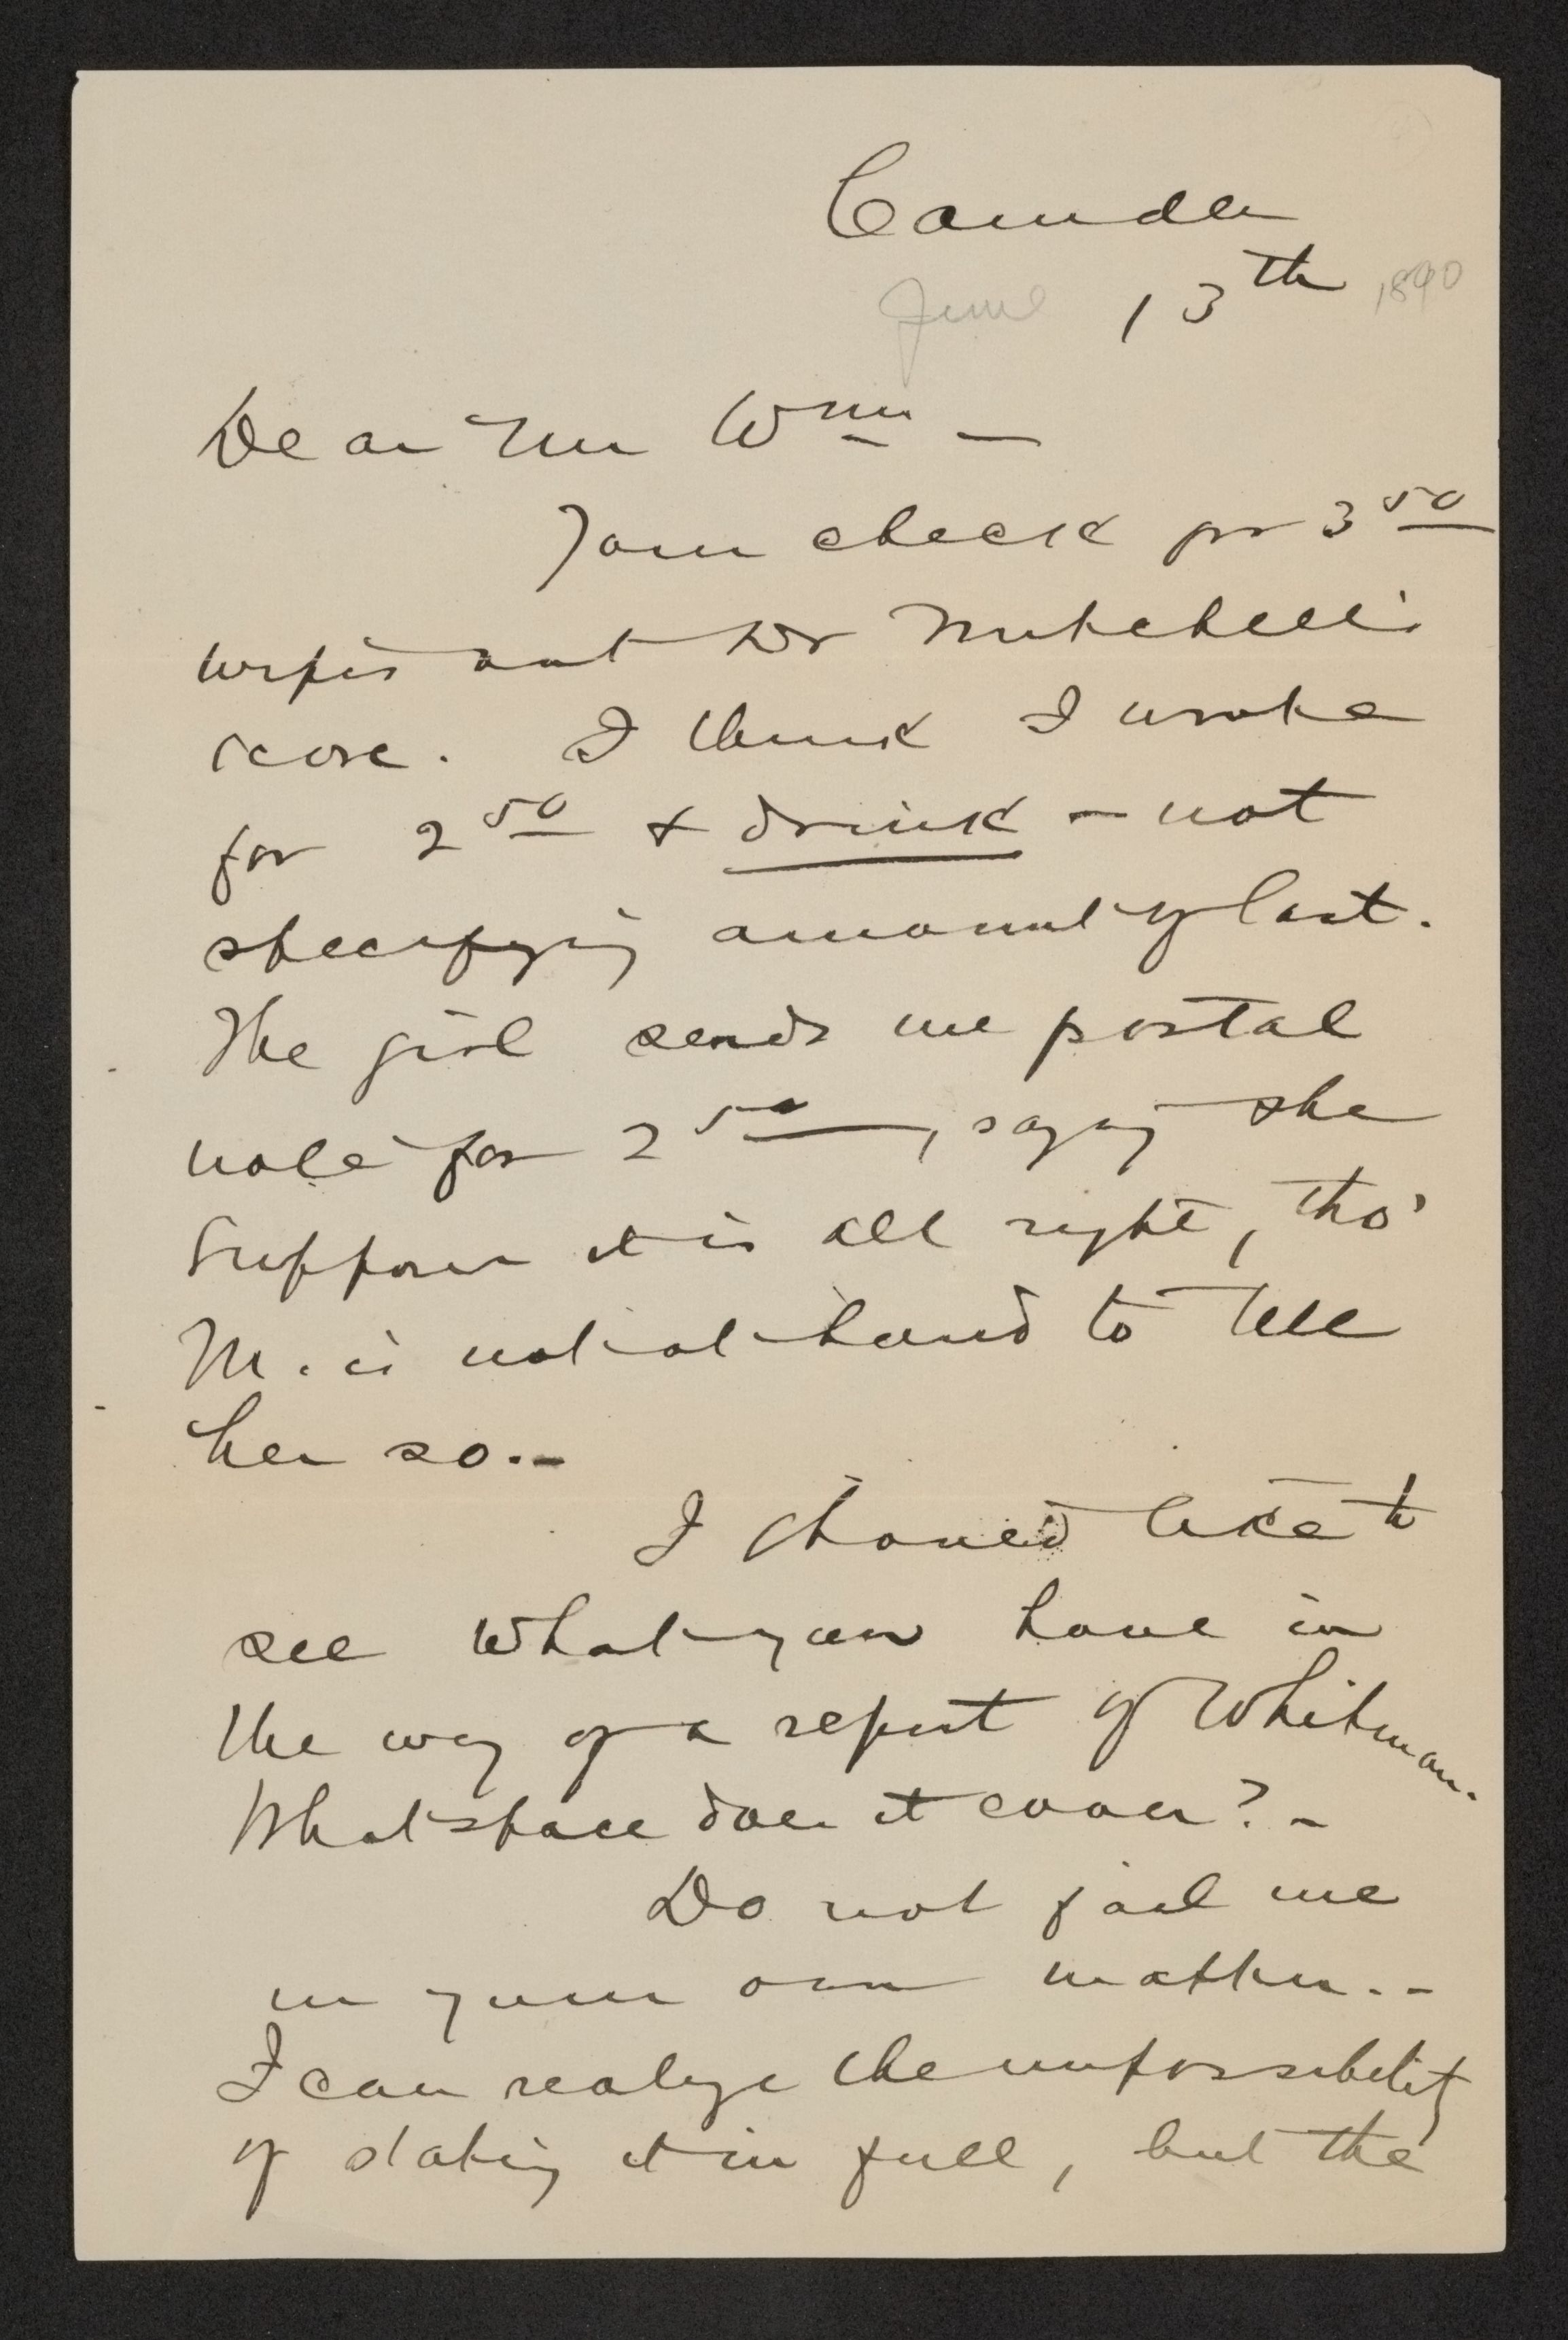 Camden
June 13th 1890
Dear Mr Wms —
Your check for 3 50
wipes out Dr Mitchell's
score. I think I wrote
for 2 50 & drink – not
specifying amount of last.
The girl sends me postal
note for 2 50, saying she
supposes it is all right, tho'
M. is not at hand to tell
her so. –
I should like to
see what you have in
the way of a report of Whitman.
What space does it cover? –
Do not fail me
in your own matter. –
I can realize the impossibility
of stating it in full, but the